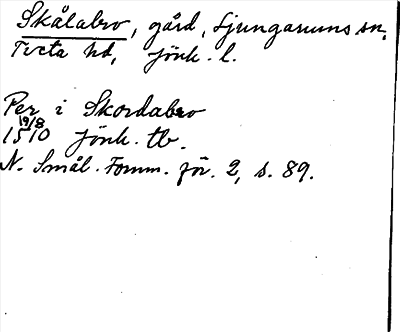 Skålabro, gård, Ljungarums sn,
Tveta hd, Jönk. l.
Per i Skordabro
19/8
1510 Jönk. tb.
N. Smål. Fornm. för. 2, s. 89.